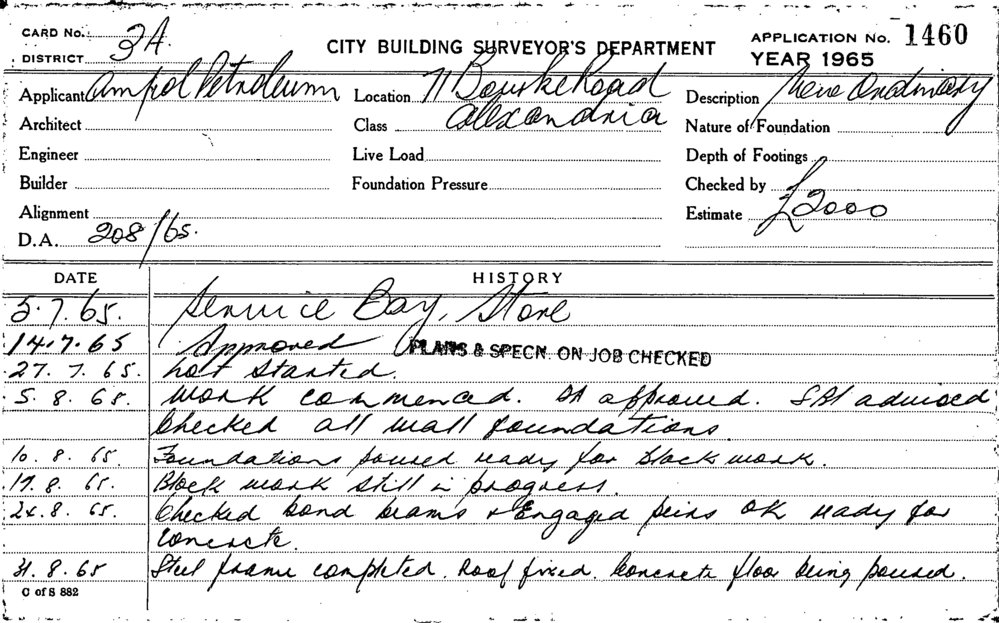 CARD No. 3A. CITY BUILDING SURVEYOR'S DEPARTMENT APPLICATION No. 1460
DISTRICT YEAR 1965
Applicant Ampol Petroleum Location 71 Bourke Road Description New Ordinary
Architect Class Alexandria Nature of Foundation
Engineer Live Load Depth of Footings
Builder Foundation Pressure Checked by
Alignment Estimate £2000
D.A. 208/65.
DATE HISTORY
5.7.65. Service Bay, Store
14.7.65 Approved PLANS & SPECN. ON JOB CHECKED
27.7.65. not started.
5.8.65. work commenced. approved. advised
Checked all wall foundations
10.8.65. Foundations poured ready for block work.
17.8.65. Block work still in progress.
24.8.65. Checked bond beams & Engaged peirs OK ready for
concrete.
31.8.65 Steel frame completed. Roof fixed. Concrete floor being poured.
C of S 882